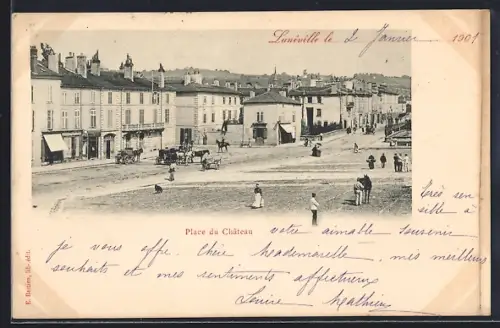 Lunéville le 2 Janvier 1901
Place du Château
Très sen
sible à
votre aimable souvenir
je vous offre. Chère Mademoiselle, mes meilleurs
souhaits et mes sentiments affectueux
Louise Mathieu